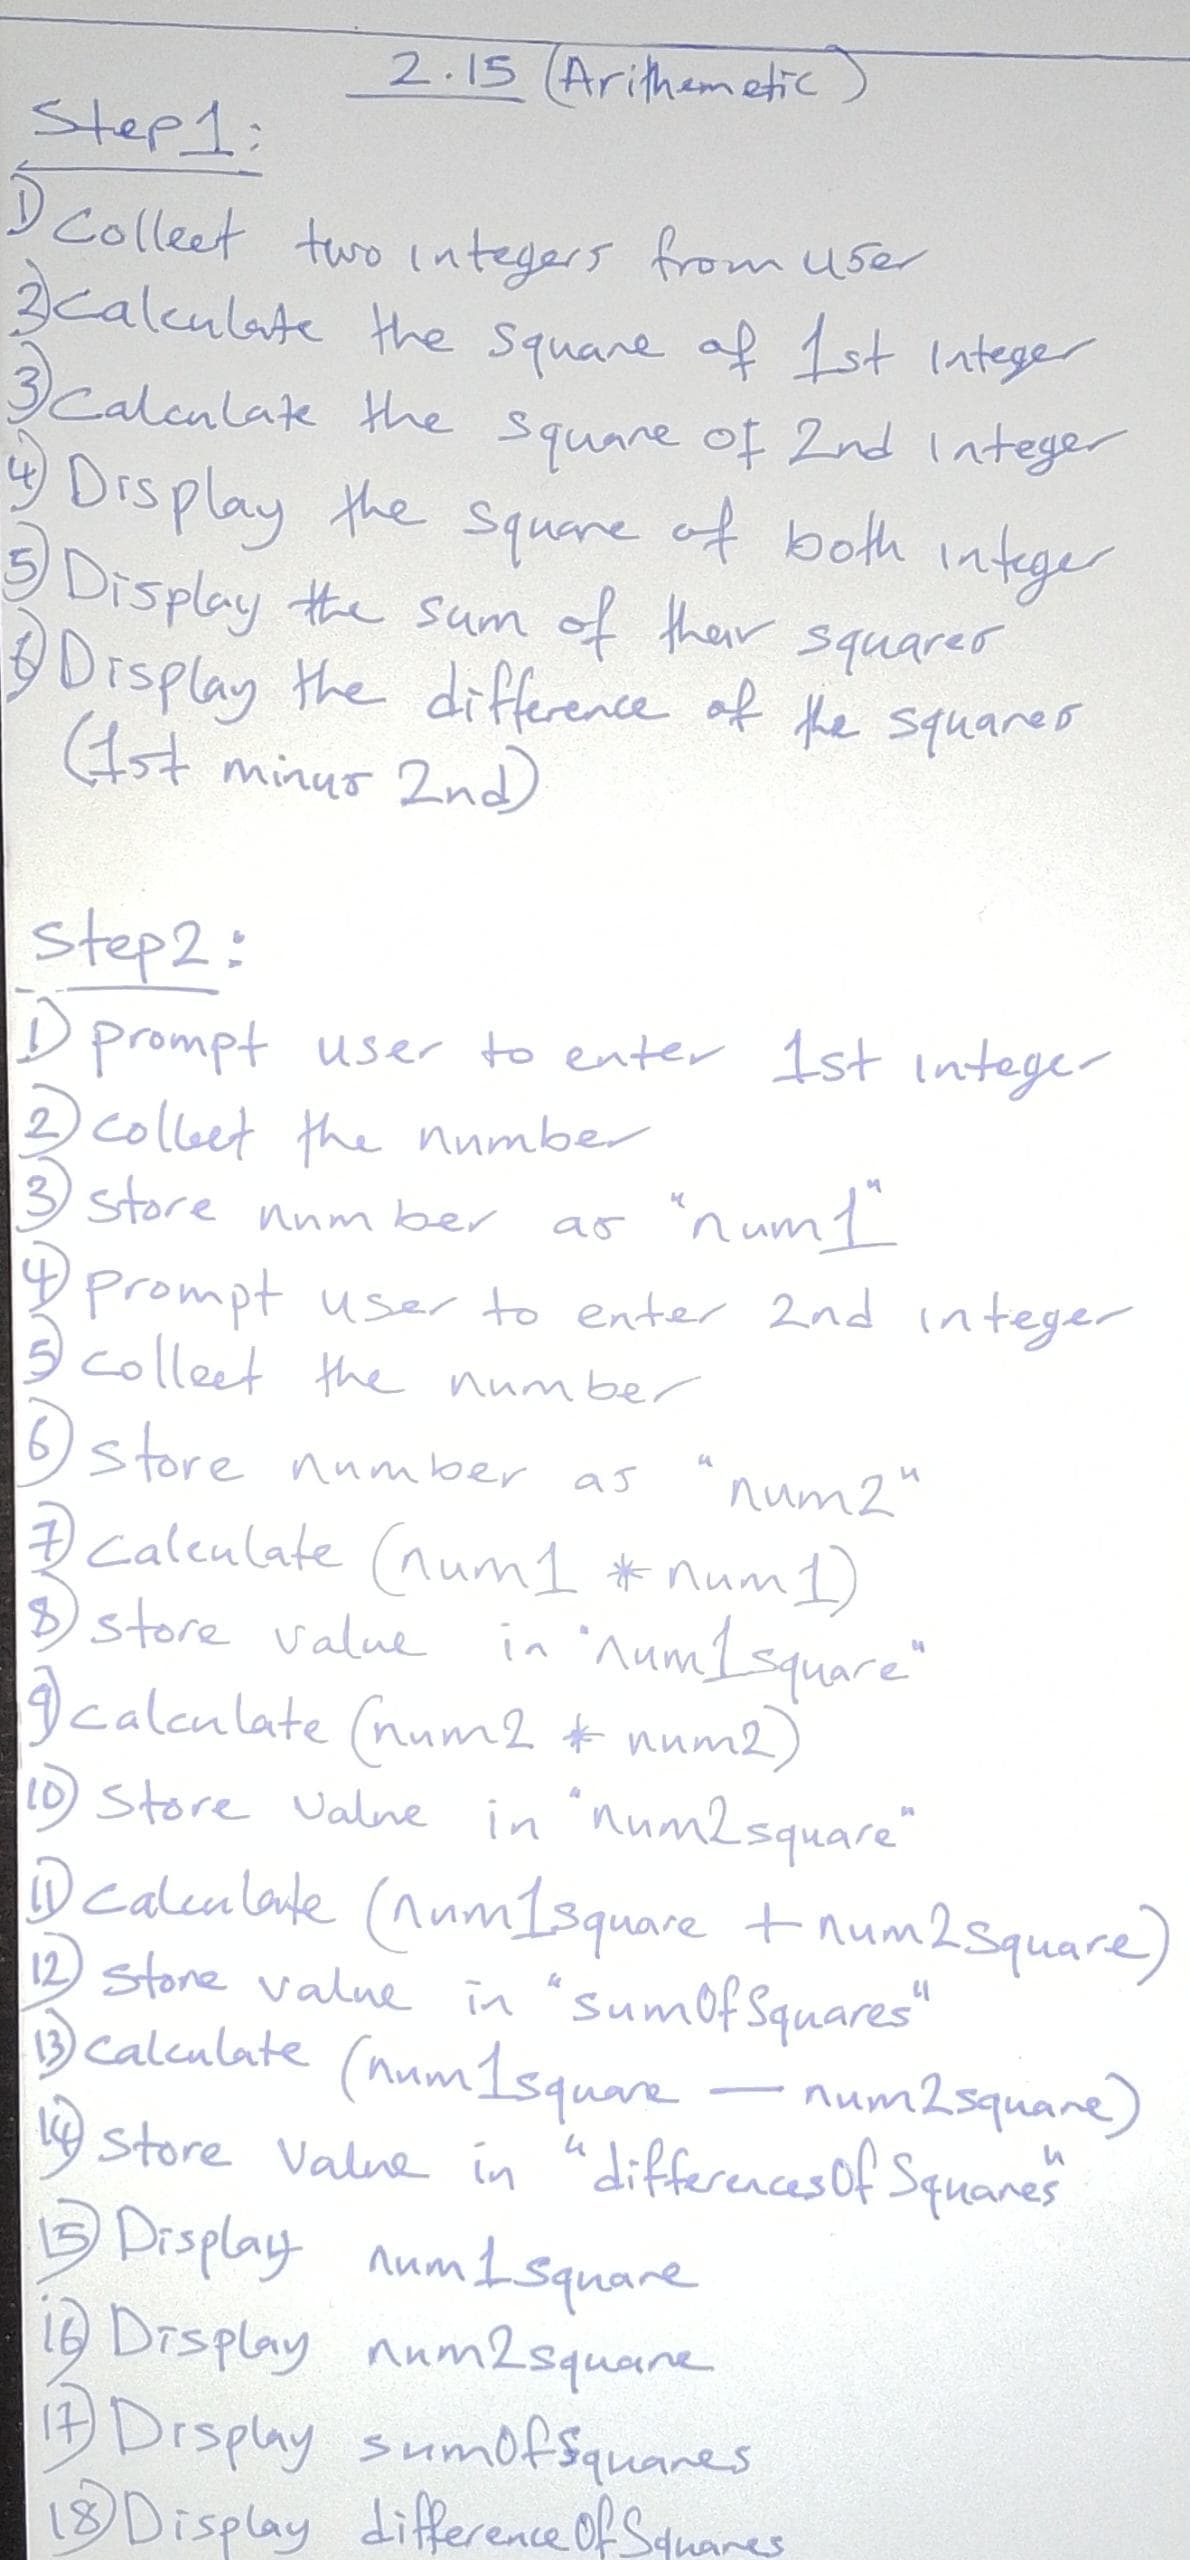 2.15 (Arithemetic)
Step1:
1) Collect two integers from user
2) Calculate the square of 1st integer
3) Calculate the square of 2nd integer
4) Display the square of both integer
5) Display the sum of their squares
6) Display the difference of the squares
(1st minus 2nd)
Step2:
1) prompt user to enter 1st integer
2) collect the number
3) store number as "num1"
4) prompt user to enter 2nd integer
5) collect the number
6) store number as "num2"
7) calculate (num1 * num1)
8) store value in "num1square"
9) calculate (num2 * num2)
10) Store value in "num2square"
11) calculate (num1square + num2square)
12) store value in "sumOfSquares"
13) calculate (num1square - num2square)
14) store value in "differencesOfSquares"
15) Display num1square
16) Display num2square
17) Display sumOfSquares
18) Display differenceOfSquares